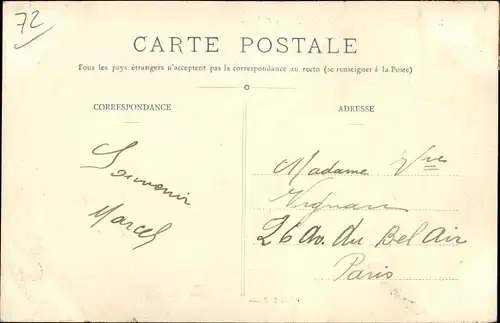 72
CARTE POSTALE
Tous les pays étrangers n'acceptent pas la correspondance au recto (se renseigner à la Poste)
CORRESPONDANCE
Souvenir
Marcel
ADRESSE
Madame Vve
Vignau
26 Av. du Bel Air
Paris